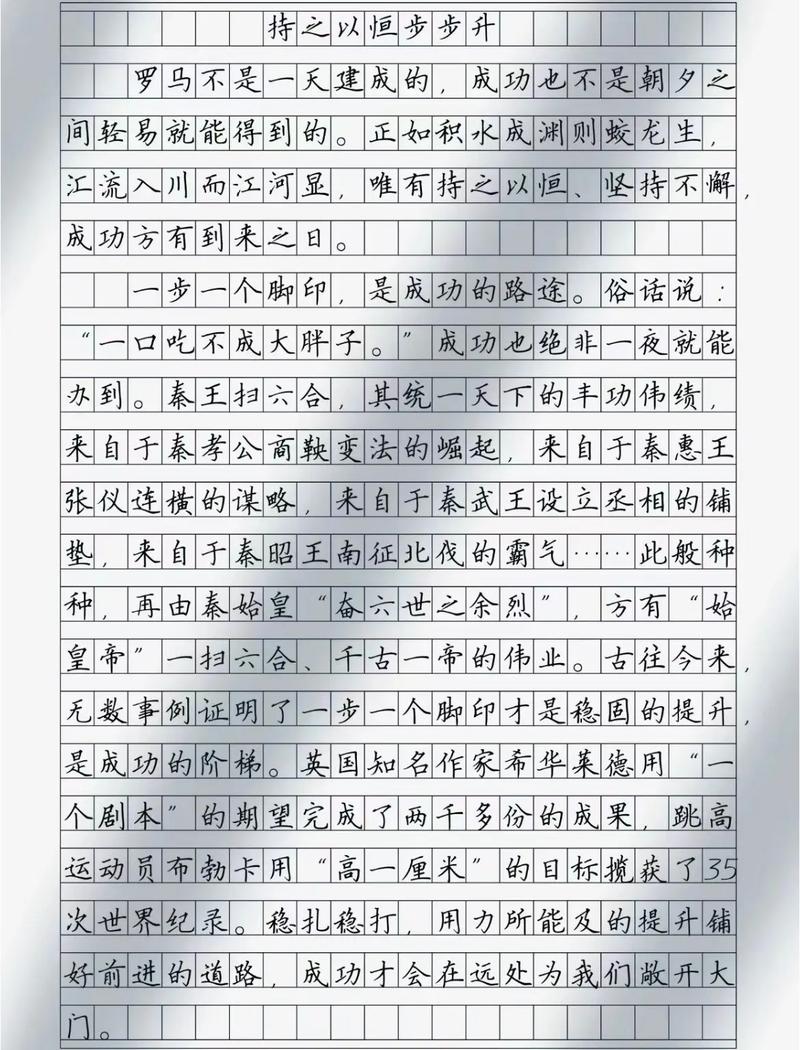 持之以恒步步升
罗马不是一天建成的，成功也不是朝夕之
间轻易就能得到的。正如积水成渊则蛟龙生，
汇流入川而江河显，唯有持之以恒、坚持不懈，
成功方有到来之日。
一步一个脚印，是成功的路途。俗话说：
“一口吃不成大胖子。”成功也绝非一夜就能
办到。秦王扫六合，其统一天下的丰功伟绩，
来自于秦孝公商鞅变法的崛起，来自于秦惠王
张仪连横的谋略，来自于秦武王设立丞相的铺
垫，来自于秦昭王南征北伐的霸气……此般种
种，再由秦始皇“奋六世之余烈”，方有“始
皇帝”一扫六合、千古一帝的伟业。古往今来，
无数事例证明了一步一个脚印才是稳固的提升，
是成功的阶梯。英国知名作家希华莱德用“一
个剧本”的期望完成了两千多份的成果，跳高
运动员布勃卡用“高一厘米”的目标揽获了35
次世界纪录。稳扎稳打，用力所能及的提升铺
好前进的道路，成功才会在远处为我们敞开大
门。